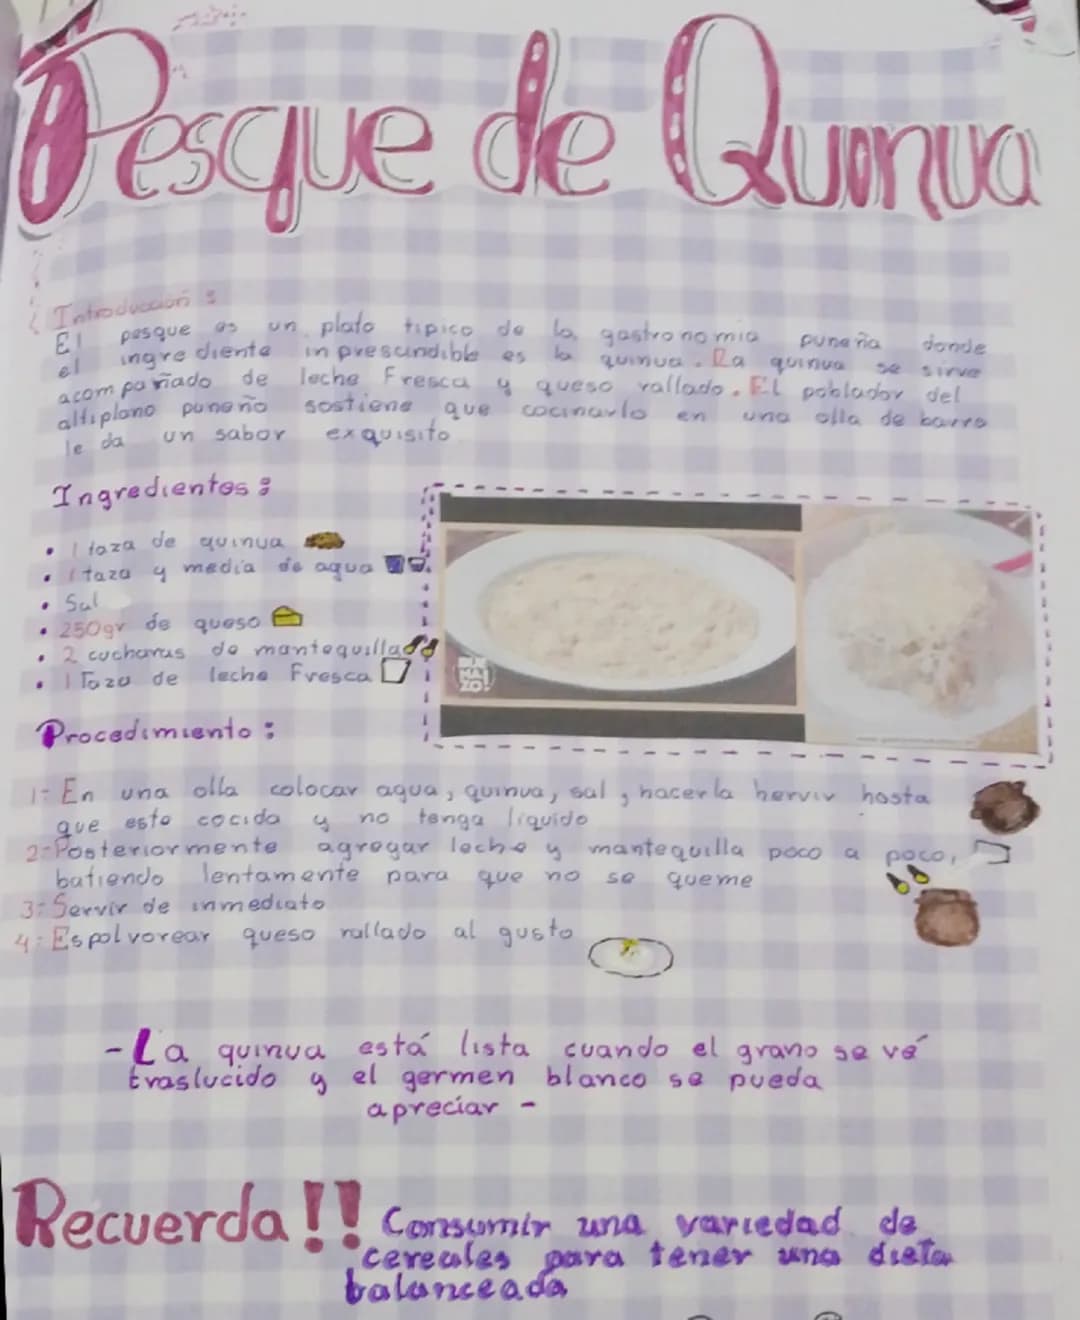 Pesque de Quinua
Introducción :
El pesque es un plato tipico de la gastronomia puneña donde
el ingrediente inprescindible es la quinua. La quinua se sirve
acompañado de leche Fresca y queso rallado. El poblador del
altiplano puneño sostiene que cocinarlo en una olla de barro
le da un sabor exquisito
Ingredientes :
• 1 taza de quinua
• 1 taza y media de agua
• Sal
• 250gr de queso
• 2 cucharas de mantequilla
• 1 Taza de leche Fresca
Procedimiento :
1- En una olla colocar agua, quinua, sal, hacerla hervir hasta
que este cocida y no tenga liquido
2- Posteriormente agregar leche y mantequilla poco a poco,
batiendo lentamente para que no se queme
3- Servir de inmediato
4- Espolvorear queso rallado al gusto
- La quinua está lista cuando el grano se vé
traslucido y el germen blanco se pueda
apreciar -
Recuerda!! Consumir una variedad de
cereales para tener una dieta
balanceada